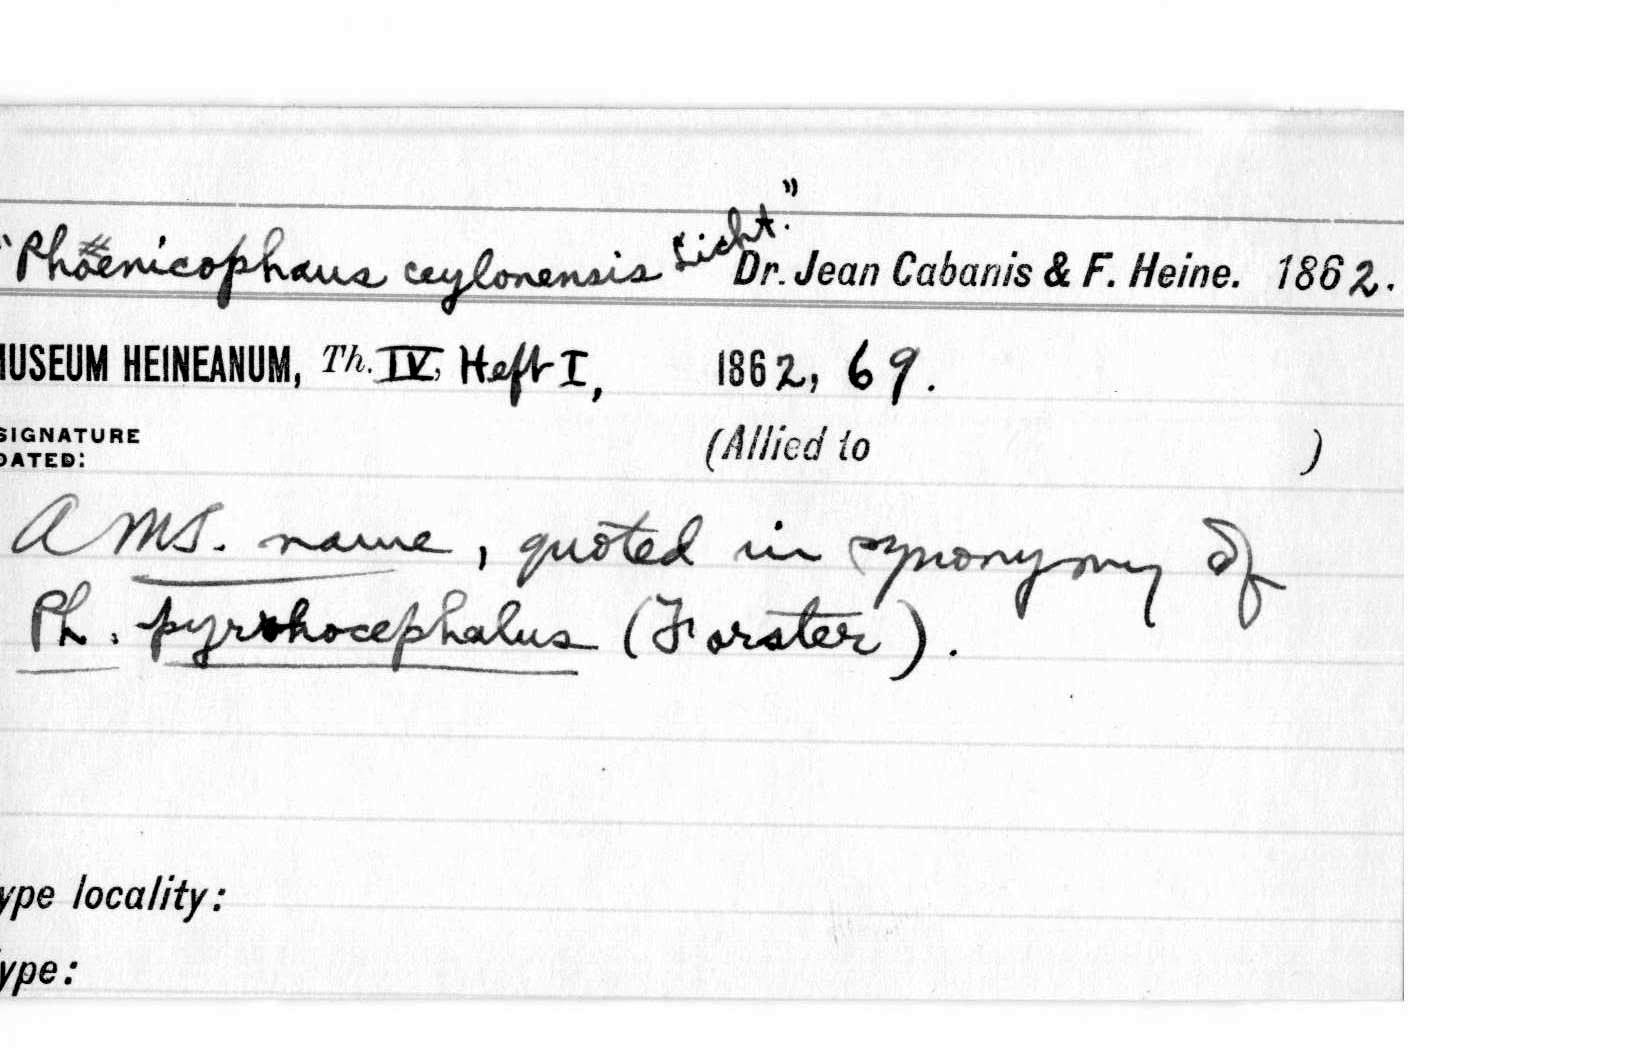 "Phoenicophaus ceylonensis Licht." Dr. Jean Cabanis & F. Heine. 1862.
MUSEUM HEINEANUM, Th. IV, Heft I, 1862, 69.
SIGNATURE
DATED:
(Allied to )
A MS. name, quoted in synonymy of
Ph. pyrrhocephalus (Forster).
ype locality:
ype: